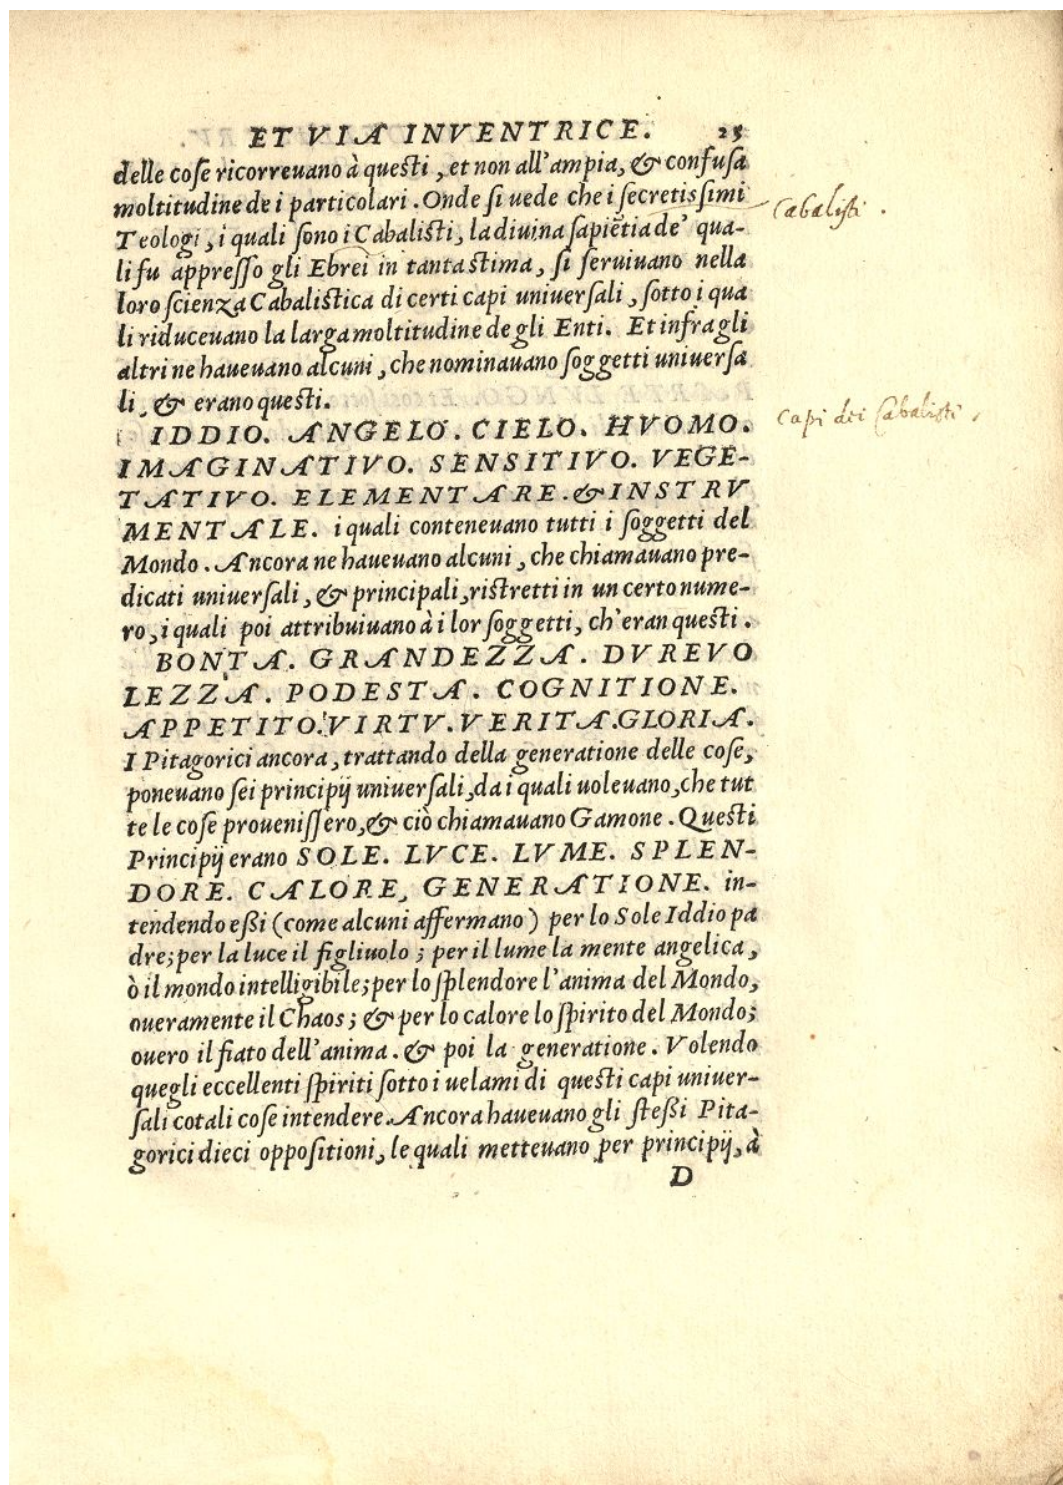 ET VIA INVENTRICE. 25
delle coſe ricorreuano à queſti, et non all'ampia, & confuſa
moltitudine de i particolari. Onde ſi uede che i ſecretisſimi
Cabaliſti.
Teologi, i quali ſono i Cabaliſti, la diuina ſapiẽtia de' qua-
li fu appreſſo gli Ebrei in tanta ſtima, ſi ſeruiuano nella
loro ſcienza Cabaliſtica di certi capi uniuerſali, ſotto i qua
li riduceuano la larga moltitudine de gli Enti. Et infra gli
altri ne haueuano alcuni, che nominauano ſoggetti uniuerſa
li, & erano queſti.
capi dei Cabaliſti,
IDDIO. ANGELO. CIELO. HVOMO.
IMAGINATIVO. SENSITIVO. VEGE-
TATIVO. ELEMENTARE. & INSTRV
MENTALE. i quali conteneuano tutti i ſoggetti del
Mondo. Ancora ne haueuano alcuni, che chiamauano pre-
dicati uniuerſali, & principali, riſtretti in un certo nume-
ro, i quali poi attribuiuano à i lor ſoggetti, ch'eran queſti.
BONTA. GRANDEZZA. DVREVO
LEZZA. PODESTA. COGNITIONE.
APPETITO. VIRTV. VERITA. GLORIA.
I Pitagorici ancora, trattando della generatione delle coſe,
poneuano ſei principij uniuerſali, da i quali uoleuano, che tut
te le coſe proueniſſero, & ciò chiamauano Gamone. Queſti
Principij erano SOLE. LVCE. LVME. SPLEN-
DORE. CALORE, GENERATIONE. in-
tendendo eßi (come alcuni affermano) per lo Sole Iddio pa
dre; per la luce il figliuolo; per il lume la mente angelica,
ò il mondo intelligibile; per lo ſplendore l'anima del Mondo,
oueramente il Chaos; & per lo calore lo ſpirito del Mondo;
ouero il fiato dell'anima. & poi la generatione. Volendo
quegli eccellenti ſpiriti ſotto i uelami di queſti capi uniuer-
ſali cotali coſe intendere. Ancora haueuano gli ſteßi Pita-
gorici dieci oppoſitioni, le quali metteuano per principij, à
D